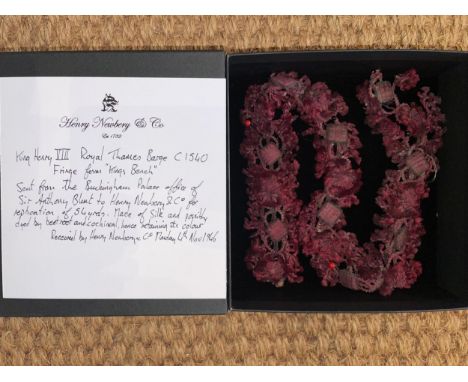 Henry Newbery & Co
Est 1782
King Henry VIII Royal Thames Barge C1540
Fringe from "Kings Bench"
Sent from the Buckingham Palace office of
Sir Anthony Blunt to Henry Newbery & Co for
replication of 54 yards. Made of silk and possibly
dyed by beetroot and cochineal, hence retaining its colour
Received by Henry Newbery & Co Monday 4th Nov 1946